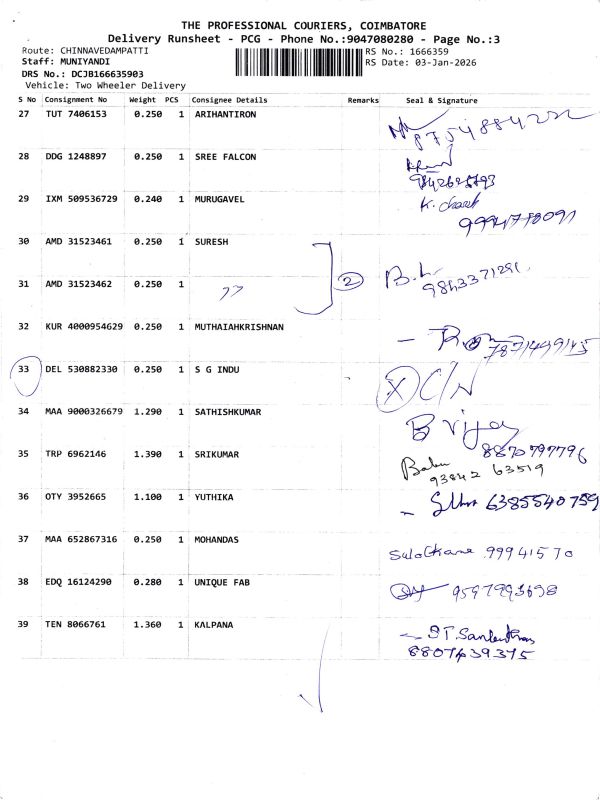 THE PROFESSIONAL COURIERS, COIMBATORE
Delivery Runsheet - PCG - Phone No.:9047080280 - Page No.:3
Route: CHINNAVEDAMPATTI RS No.: 1666359
Staff: MUNIYANDI RS Date: 03-Jan-2026
DRS No.: DCJB166635903
Vehicle: Two Wheeler Delivery
S No Consignment No Weight PCS Consignee Details Remarks Seal & Signature
27 TUT 7406153 0.250 1 ARIHANTIRON
8754884222
28 DDG 1248897 0.250 1 SREE FALCON
29 IXM 509536729 0.240 1 MURUGAVEL
30 AMD 31523461 0.250 1 SURESH
31 AMD 31523462 0.250 1 2
9843371291
32 KUR 4000954629 0.250 1 MUTHAIAHKRISHNAN
33 DEL 530882330 0.250 1 S G INDU X C/N
34 MAA 9000326679 1.290 1 SATHISHKUMAR B Vijay
8870797796
35 TRP 6962146 1.390 1 SRIKUMAR Babu
93842 63519
36 OTY 3952665 1.100 1 YUTHIKA 6385540759
37 MAA 652867316 0.250 1 MOHANDAS
99941570
38 EDQ 16124290 0.280 1 UNIQUE FAB
39 TEN 8066761 1.360 1 KALPANA
8807439375